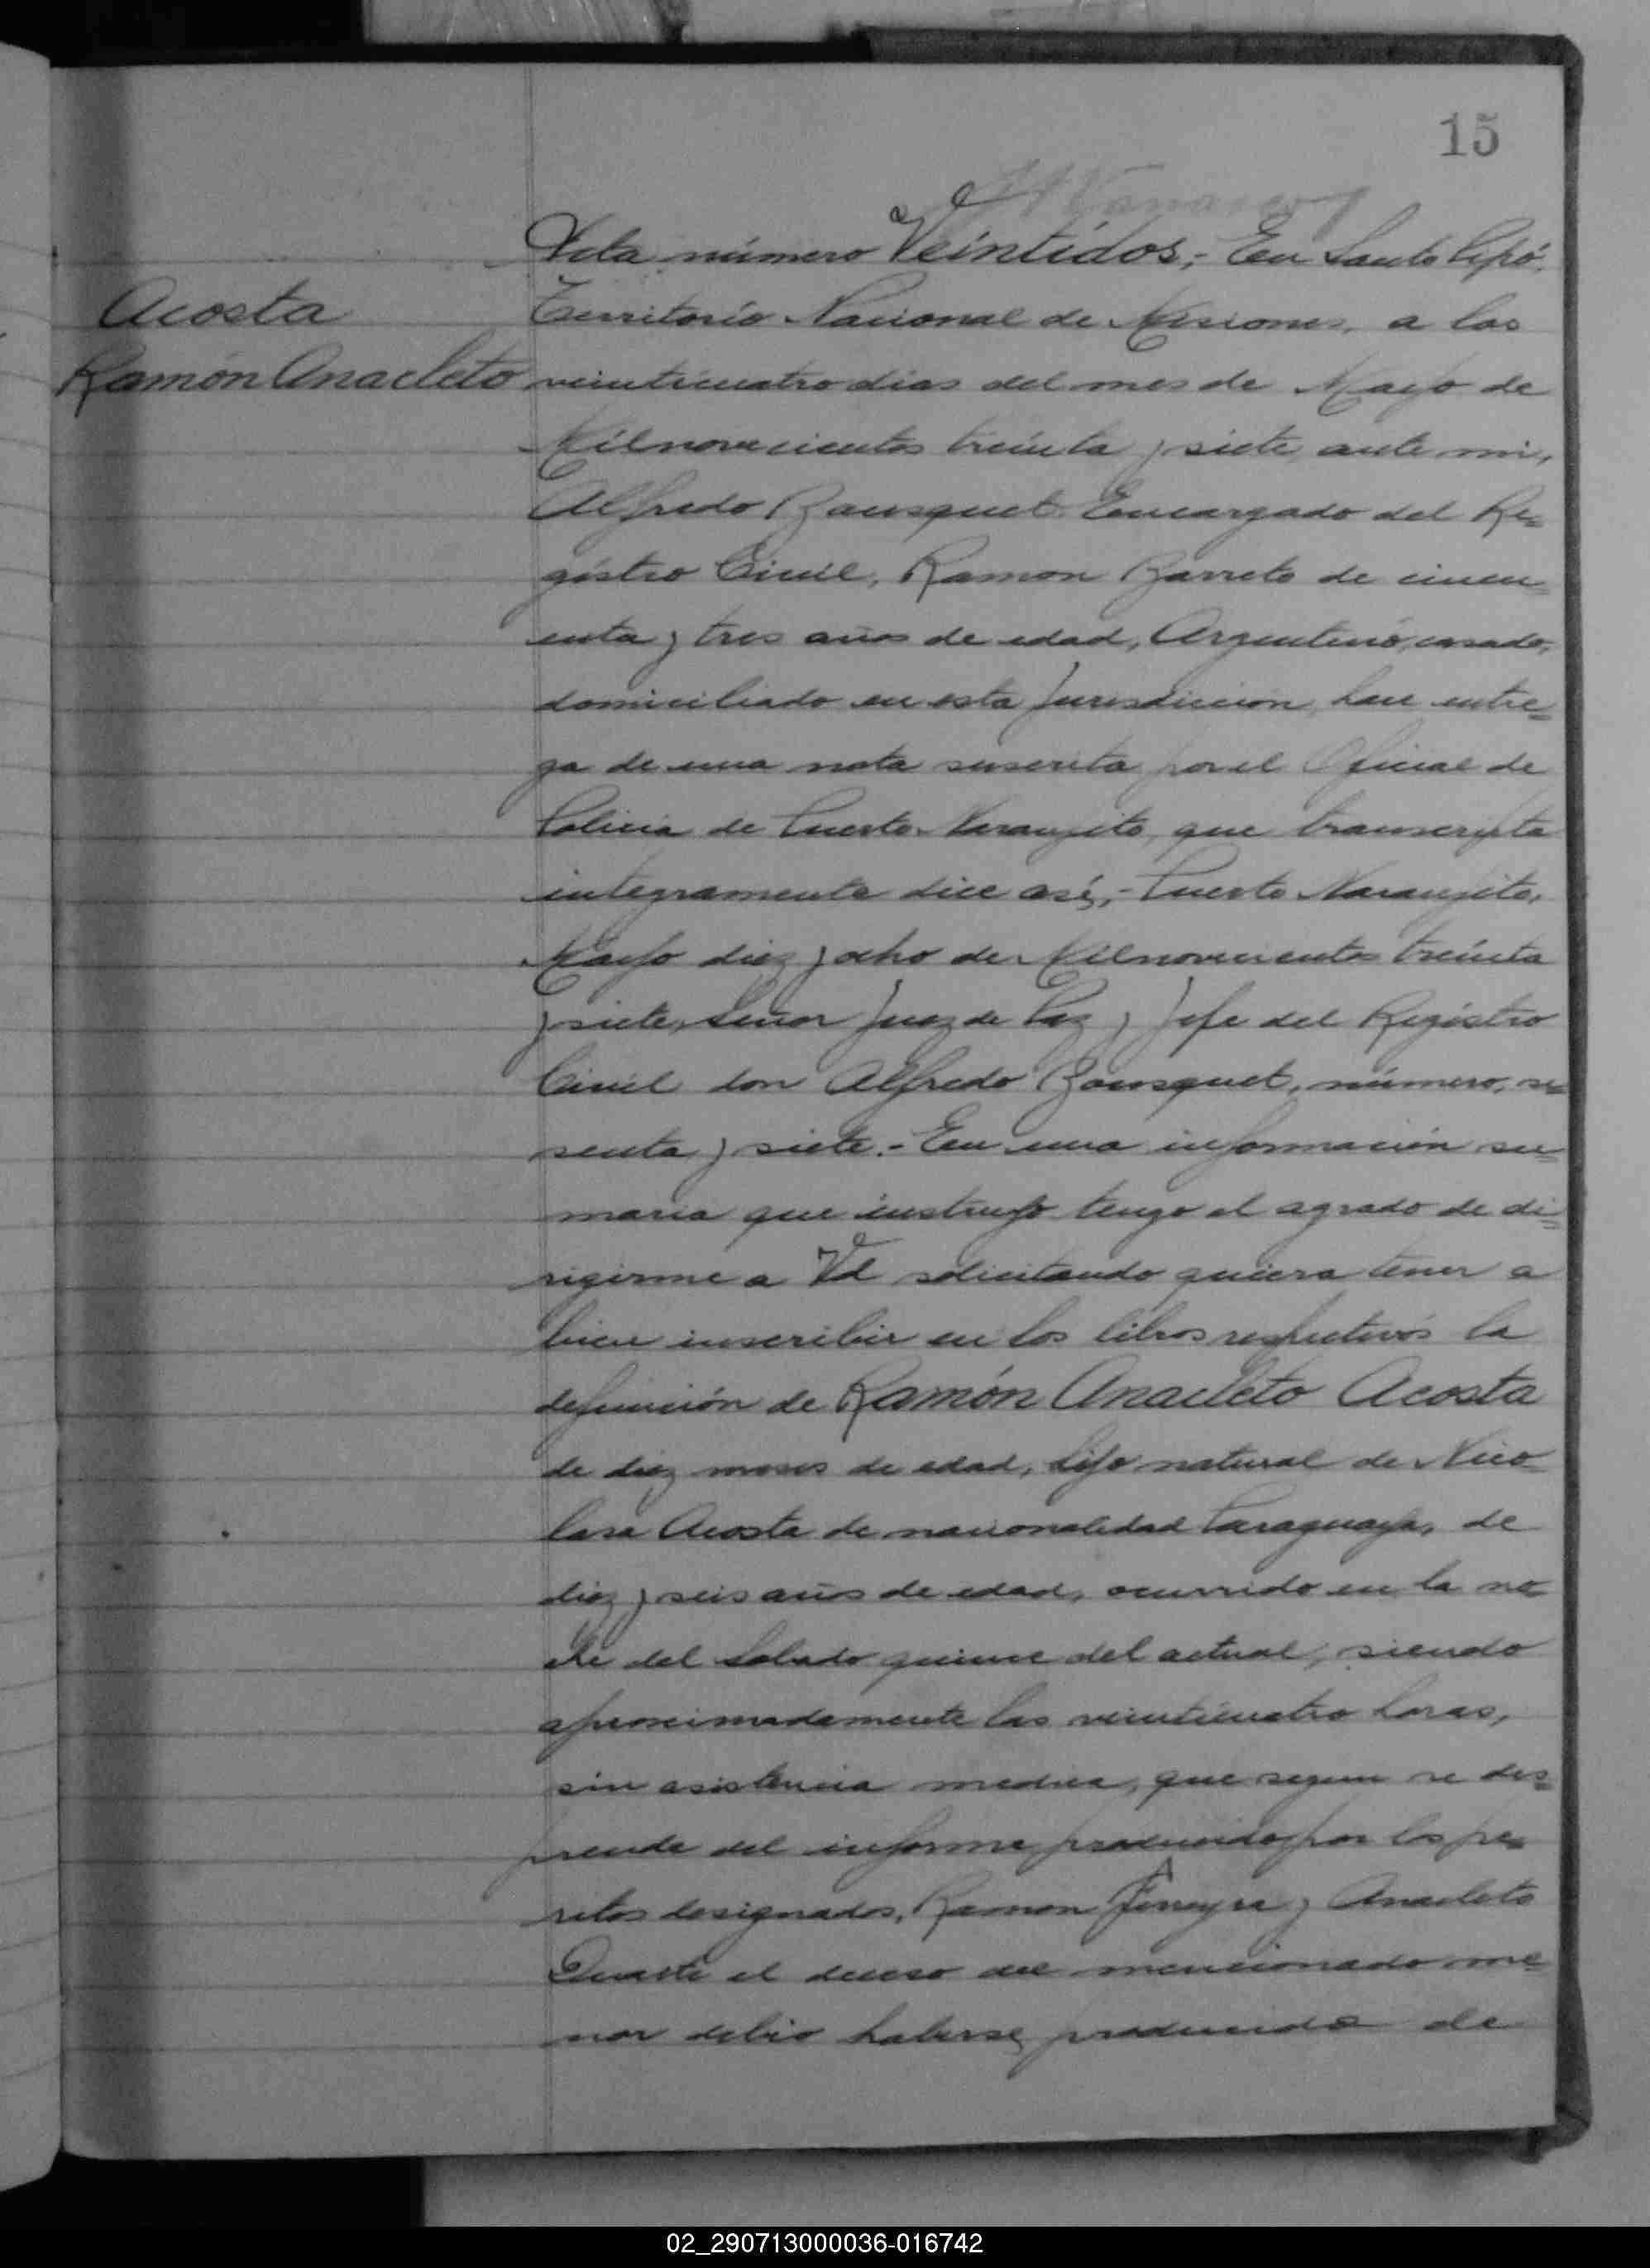 15
Acta número Veintidos,- En Santo Pipó,
Acosta
Territorio Nacional de Misiones, a los
Ramón Anacleto
veinticuatro dias del mes de Mayo de
Milnovecientos treinta y siete, ante mi,
Alfredo Bousquet Encargado del Re=
gistro Civil, Ramon Barreto de cincu=
enta y tres años de edad, Argentino, casado,
domiciliado en esta Jurisdiccion, hace entre=
ga de una nota suscrita por el Oficial de
Policia de Puerto Naranjito, que transcripta
integramente dice así,- Puerto Naranjito,
Mayo diez y ocho de Milnovecientos treinta
y siete, Señor Juez de Paz y Jefe del Registro
Civil don Alfredo Bousquet, número, se=
senta y siete.- En una información su=
maria que instruyo tengo el agrado de di=
rigirme a Vd solicitando quiera tener a
bien inscribir en los libros respectivos la
defunción de Ramón Anacleto Acosta
de diez meses de edad, hijo natural de Nico=
lasa Acosta de nacionalidad Paraguaya, de
diez y seis años de edad, ocurrido en la no=
che del Sabado quince del actual, siendo
aproximadamente las veinticuatro horas,
sin asistencia medica, que segun se des=
prende del informe producido por los pe=
ritos designados, Ramon Ferreyra y Anacleto
Duarte el deceso del mencionado me=
nor debio haberse producido de
02_290713000036-016742